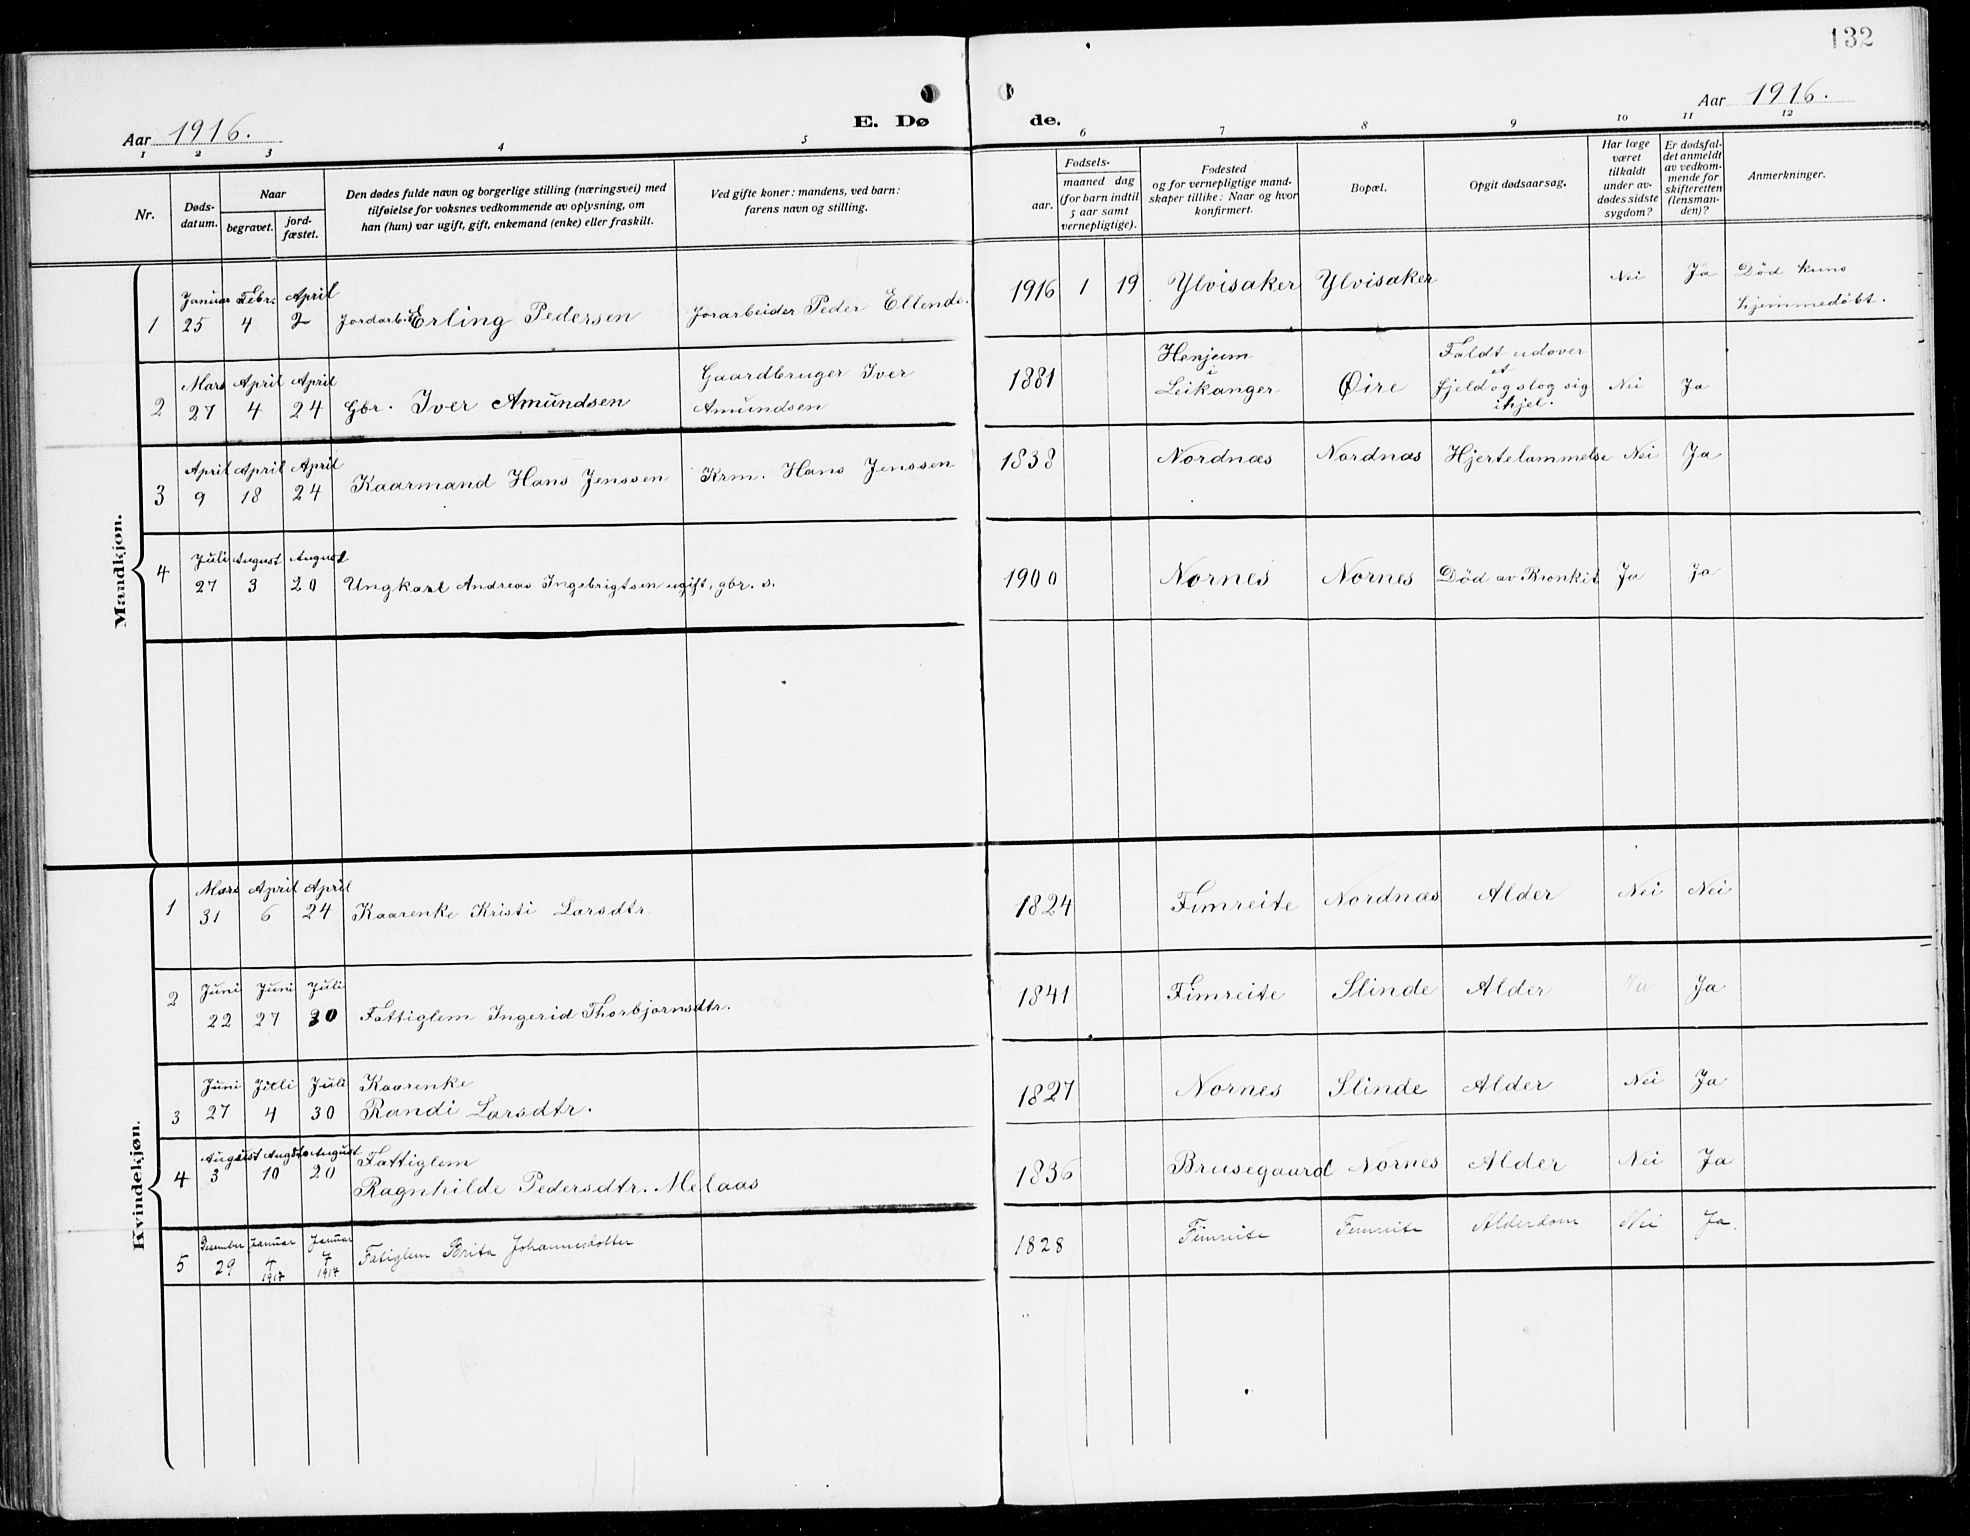 132
Aar 1916. E. Døde. Aar 1916.
1 2 3 4 5 6 7 8 9 10 11 12
Nr.
Dødsdatum.
Naar
begravet.
jordfæstet.
Den dødes fulde navn og borgerlige stilling (næringsvei) med
tilføielse for voksnes vedkommende av oplysning, om
han (hun) var ugift, gift, enkemand (enke) eller fraskilt.
Ved gifte koner: mandens, ved barn:
farens navn og stilling.
Fødsels-
aar.
maaned dag
(for barn indtil
5 aar samt
vernepligtige).
Fødested
og for vernepligtige mand-
skaper tillike: Naar og hvor
konfirmert.
Bopæl.
Opgit dødsaarsag.
Har læge
været
tilkaldt
under av-
dødes sidste
sygdom?
Er dødsfal-
det anmeldt
av vedkom-
mende for
skifteretten
(lensman-
den)?
Anmerkninger.
Mandkjøn.
1 Januar 25 Febr. 4 April 2 Jordarb. Erling Pedersen Jorarbeider Peder Ellends. 1916 1 19 Ylvisaker Ylvisaker Nei Ja Død kuns
hjemmedøbt.
2 Mars 27 April 4 April 24 Gbr. Iver Amundsen Gaardbruger Iver
Amundsen 1881 Henjum
i
Leikanger Øire Faldt udover
et
fjeld og slog sig
ihjel. Nei Ja
3 April 9 April 18 April 24 Kaarmand Hans Jenssen Krm. Hans Jenssen 1838 Nordnæs Nordnæs Hjertelammelse Nei Ja
4 Juli 27 August 3 August 20 Ungkarl Andreas Ingebrigtsen ugift, gbr. s. 1900 Nornes Nornes Død av Bronkit Ja Ja
Kvindekjøn.
1 Mars 31 April 6 April 24 Kaarenke Kristi Larsdtr. 1824 Fimreite Nordnæs Alder Nei Nei
2 Juni 22 Juni 27 Juli 30 Fattiglem Ingerid Thorbjørnsdtr. 1841 Fimreite Slinde Alder Ja
3 Juni 27 Juli 4 Juli 30 Kaarenke
Randi Larsdtr. 1827 Nornes Slinde Alder Nei Ja
4 August 3 August 10 August 20 Fattiglem
Ragnhilde Pedersdtr. Melaas 1836 Brusegaard Nornes Alder Nei Ja
5 Desember 29 Januar 7 1917 Januar 7 1917 Fatiglem Brita Johannesdotter 1828 Fimreite Fimreite Alderdom Nei Ja.